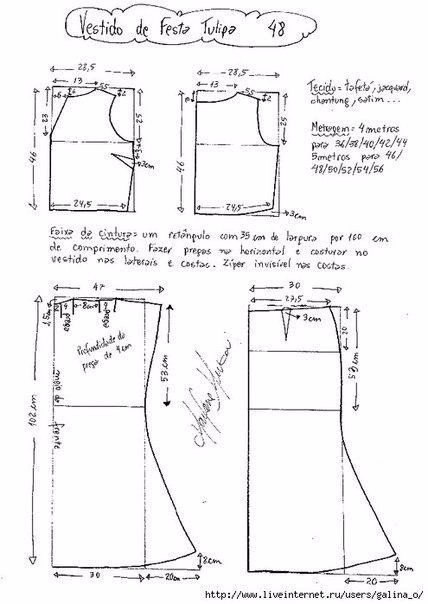 Vestido de Festa Tulipa 48
28,5
13
5,5
2
23
25
46
3cm
24,5
28,5
13
5,5
2
8
25
46
24,5
3cm
Tecido= tafetá, jacquard,
shantung, satim...
Metragem= 4 metros
para 36/38/40/42/44
5 metros para 46/
48/50/52/54/56
Faixa da cintura= um retângulo com 35 cm de largura por 160 cm
de comprimento. Fazer pregas na horizontal e costurar no
vestido nas laterais e costas. Zíper invisível nas costas.
47
1,5cm
4
8cm
4
prega
prega
Profundidade da
prega de 4 cm
meio da
frente
53 cm
102 cm
30
20cm
8cm
30
27,5
3cm
20
53 cm
20
8cm
http://www.liveinternet.ru/users/galina_o/